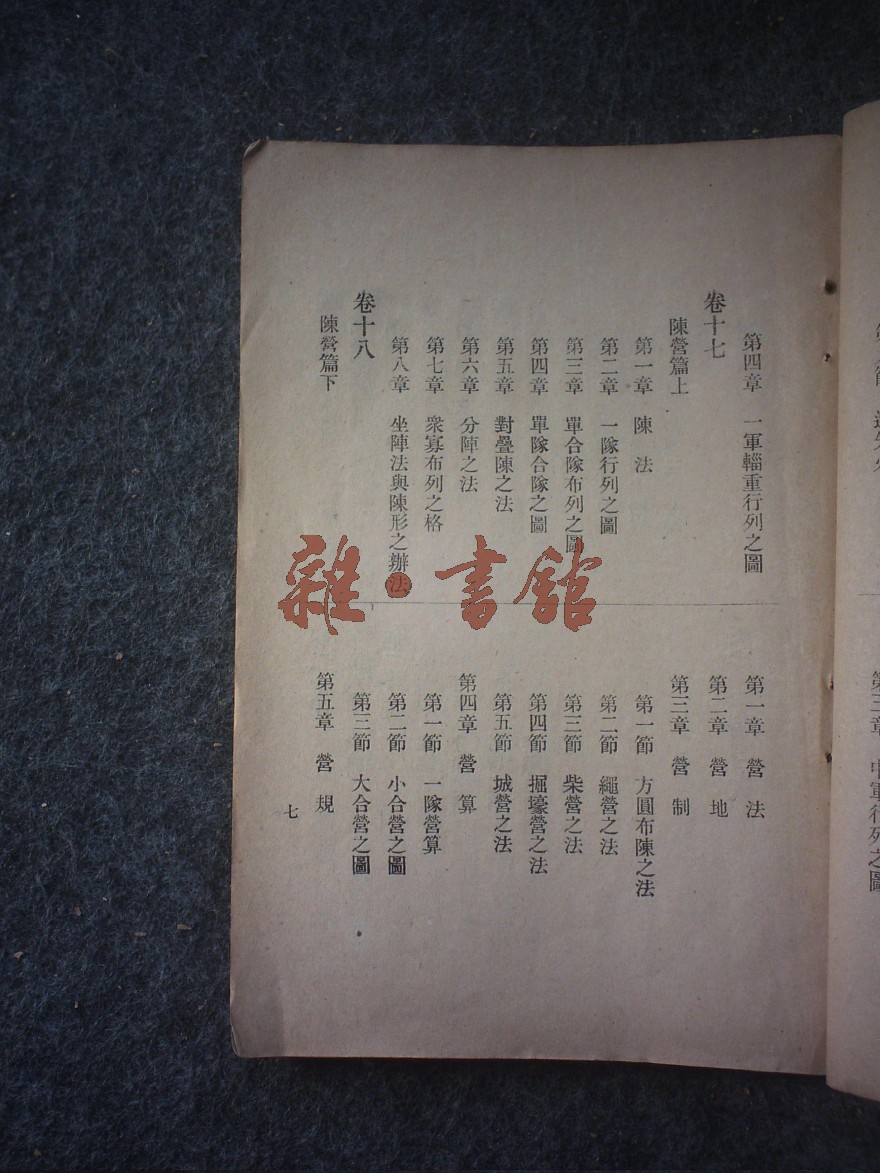 第四章　一軍輜重行列之圖
卷十七
陳營篇上
第一章　陳　法
第二章　一隊行列之圖
第三章　單合隊布列之圖
第四章　單隊合隊之圖
第五章　對疊陳之法
第六章　分陣之法
第七章　衆寡布列之格
第八章　坐陣法與陳形之辦法
卷十八
陳營篇下
第一章　營　法
第二章　營　地
第三章　營　制
第一節　方圓布陳之法
第二節　繩營之法
第三節　柴營之法
第四節　掘壕營之法
第五節　城營之法
第四章　營　算
第一節　一隊營算
第二節　小合營之圖
第三節　大合營之圖
第五章　營　規
七
雜·書館
第三章　中軍行列之圖